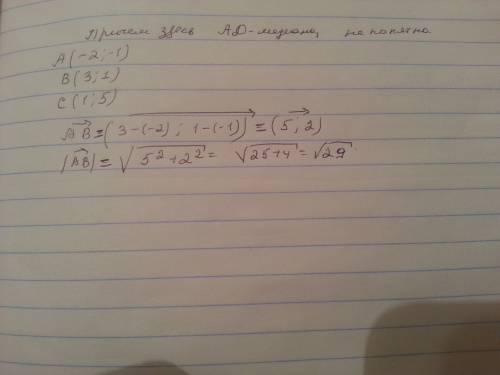 Причем здесь AD-медиана, не понятно
A(-2;-1)
B(3;1)
C(1;5)
AB=(3-(-2); 1-(-1))=(5;2)
|AB|=√5²+2²= √25+4=√29